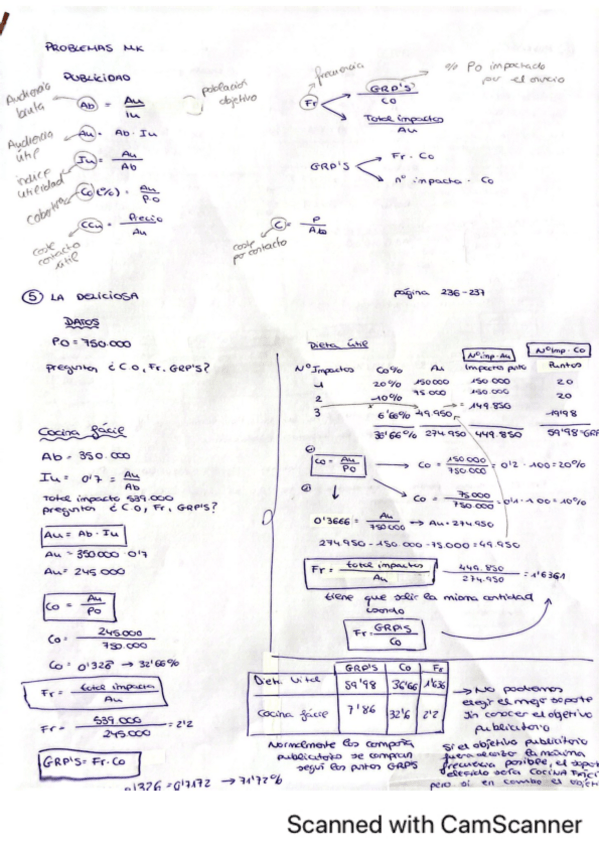 PROBLEMAS MK
PUBLICIDAD
Audiencia bruta
Ab = Au / Iu
población objetivo
Audiencia útil
Au = Ab · Iu
índice utilidad
Iu = Au / Ab
cobertura
Co (%) = Au / P.O
coste contacto útil
CCu = Precio / Au
frecuencia
% PO impactado por el anuncio
Fr
GRP'S / CO
Total impactos / Au
GRP'S
Fr · Co
nº impacto · Co
coste por contacto
C = P / Ab
5 LA DELICIOSA
página 236-237
DATOS
PO = 750.000
preguntan ¿CO, Fr. GRP'S?
Cocina fácil
Ab = 350.000
Iu = 0'7 = Au / Ab
Total impacto 539.000
preguntan ¿CO, Fr, GRP'S?
Au = Ab · Iu
Au = 350000 · 0'7
Au = 245000
Co = Au / PO
Co = 245000 / 750.000
Co = 0'326 → 32'66%
Fr = total impacto / Au
Fr = 539.000 / 245000 = 2'2
GRP'S = Fr · Co
0'326 = 0'7172 → 71'72%
Dieta útil
Nº imp · Au
Nº Imp · CO
Nº Impactos Co% Au Impactos Puntos
1 20% 150000 150 000 20
2 10% 75 000 150 000 20
3 6'66% 49.950 = 149.850 19'98
36'66% 274.950 449.850 59'98 GRP
Co = Au / PO → Co = 150000 / 750000 = 0'2 · 100 = 20%
Co = 75000 / 750000 = 0'1 · 100 = 10%
0'3666 = Au / 750000 → Au = 274.950
274.950 - 150.000 - 75.000 = 49.950
Fr = total impactos / Au
449.850 / 274.950 = 1'6361
tiene que salir la misma cantidad
cuando
Fr = GRP'S / Co
GRP'S Co Fr
Dieta Vital 59'98 36'66 1'636
Cocina fácil 7'86 32'6 2'2
→ No podemos
elegir el mejor soporte
sin conocer el objetivo
publicitario
Normalmente las
publicitario se compran
según los puntos GRPS
Si el objetivo publicitario
fuera la máxima
frecuencia posible, el
elegido sería COCINA
pero si en cambio el
Scanned with CamScanner